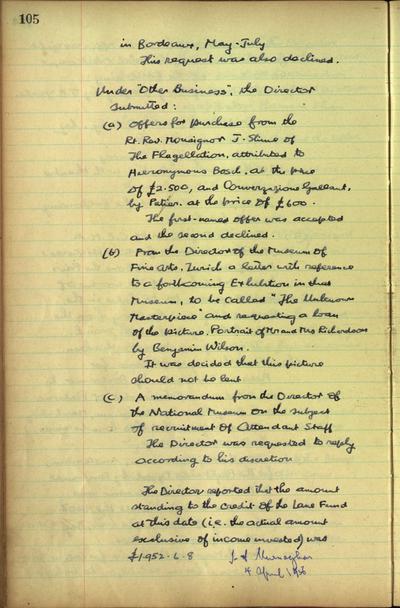 105
in Bordeaux, May-July
This request was also declined.
Under "Other Business", the Director
submitted:
(a) Offers for purchase from the
Rt. Rev. Monsignor J. Shine of
The Flagellation, attributed to
Hieronymous Bosch, at the price
of £2.500, and Conversazione Gallant,
by Pater, at the price of £600.
The first-named offer was accepted
and the second declined.
(b) From the Director of the Museum of
Fine Arts, Zurich a letter with reference
to a forthcoming Exhibition in that
Museum, to be called "The Unknown
Masterpiece" and requesting a loan
of the picture, Portrait of Mr and Mrs Richardson
by Benjamin Wilson.
It was decided that this picture
should not be lent
(c) A memorandum from the Director of
the National Museum on the subject
of recruitment of Attendant Staff
The Director was requested to reply
according to his discretion
The Director reported that the amount
standing to the credit of the Lane Fund
at this date (i.e. the actual amount
exclusive of income invested) was
£1952.6.8
4 April 1956